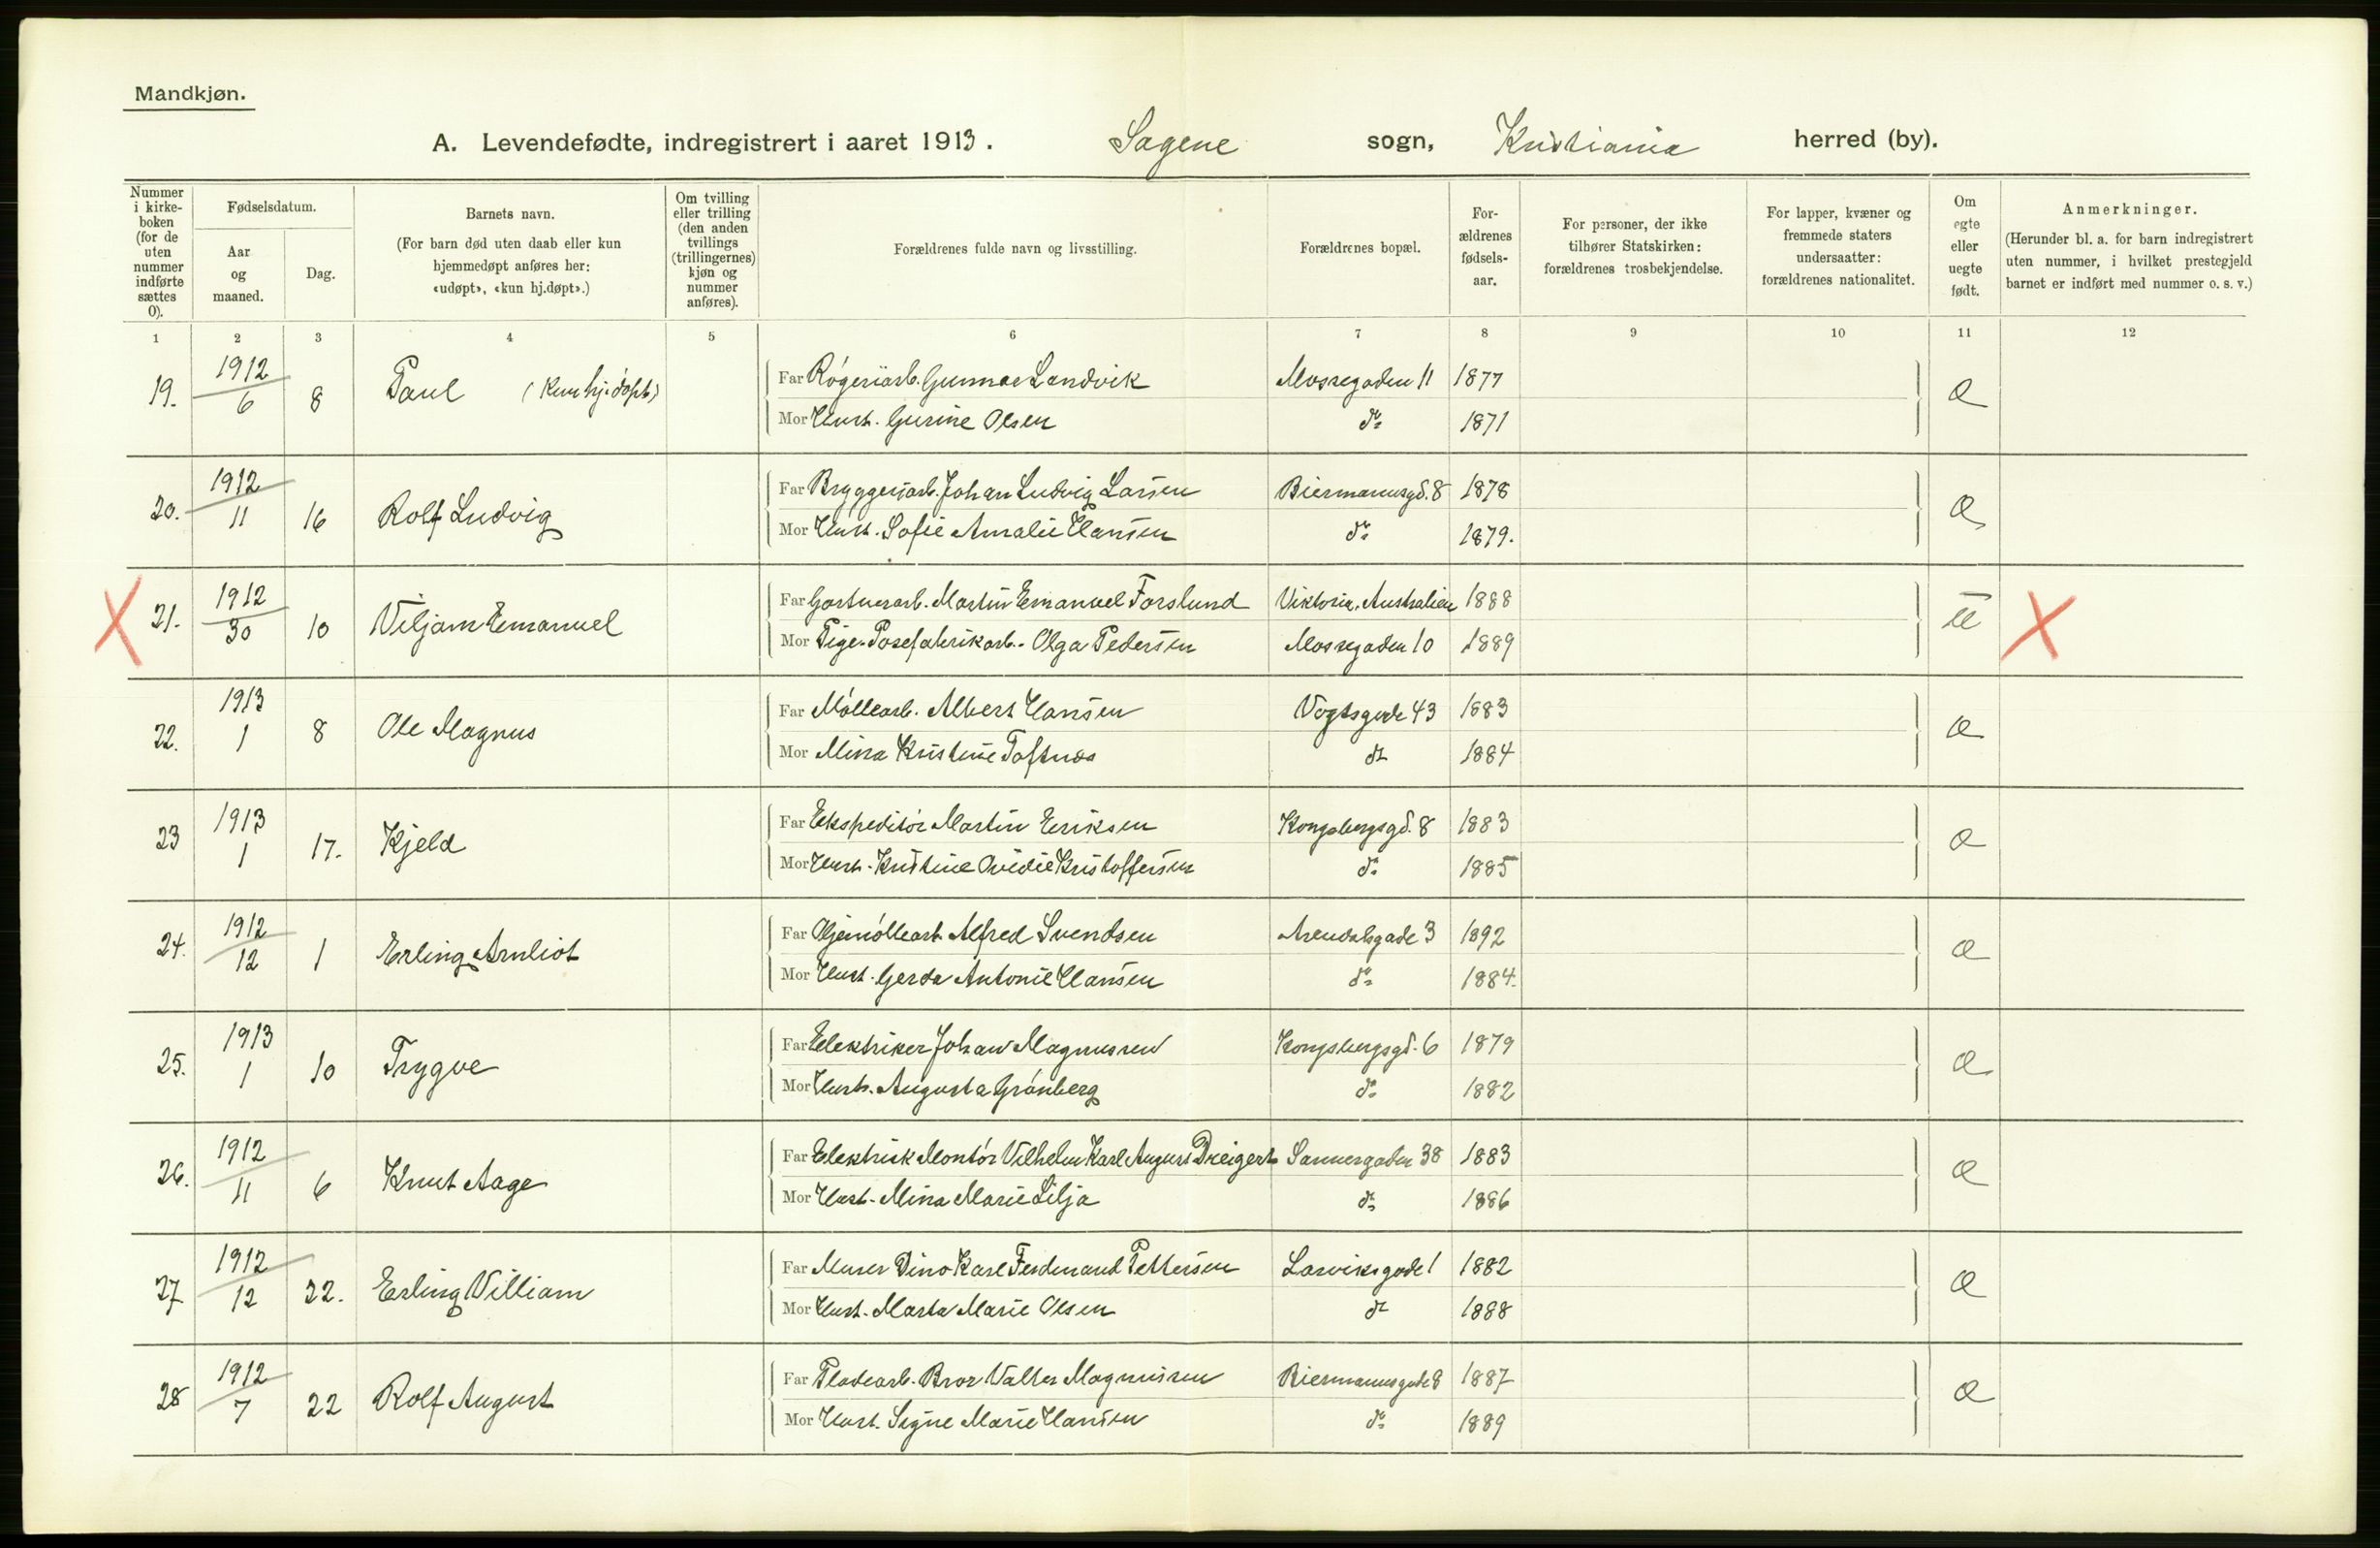 Mandkjøn.
A. Levendefødte, indregistrert i aaret 1913. Sagene sogn, Kristiania herred (by).
Nummer i kirke-boken (for de uten nummer indførte sættes 0).
Fødselsdatum.
Aar og maaned.
Dag.
Barnets navn.
(For barn død uten daab eller kun hjemmedøpt anføres her: «udøpt», «kun hj.døpt».)
Om tvilling eller trilling (den anden tvillings (trillingernes) kjøn og nummer anføres).
Forældrenes fulde navn og livsstilling.
Forældrenes bopæl.
For-ældrenes fødsels-aar.
For personer, der ikke tilhører Statskirken: forældrenes trosbekjendelse.
For lapper, kvæner og fremmede staters undersaatter: forældrenes nationalitet.
Om egte eller uegte født.
Anmerkninger.
(Herunder bl. a. for barn indregistrert uten nummer, i hvilket prestegjeld barnet er indført med nummer o. s. v.)
1 2 3 4 5 6 7 8 9 10 11 12
19. 1912 6 8 Paul (kun hj.døpt) Far Røgeriarb. Gunnar Landvik Mossegaden 11 1877 Æ
Mor Hust. Gurine Olsen do 1871
20. 1912 11 16 Rolf Ludvig Far Bryggeriarb. Johan Ludvig Larsen Biermannsgd. 8 1878 Æ
Mor Hust. Sofie Amalie Hansen do 1879.
X 21. 1912 30 10 Viljam Emanuel Far Gartnerarb. Martin Emanuel Forslund Viktoria, Australien 1888 U X
Mor Pige. Posefabrikarb. Olga Pedersen Mossegaden 10 1889
22. 1913 1 8 Ole Magnus Far Møllearb. Albert Hansen Vogtsgade 43 1883 Æ
Mor Mina Kristine Toftnæs do 1884
23 1913 1 17. Kjeld Far Ekspeditør Martin Eriksen Kongsbergsgd. 8 1883 Æ
Mor Hust. Kristine Ovidie Kristoffersen do 1885
24. 1912 12 1 Erling Arnliot Far Oljemøllearb. Alfred Svendsen Arendalsgade 3 1892 Æ
Mor Hust. Gerda Antonie Hansen do 1884.
25. 1913 1 10 Trygve Far Elektriker Johan Magnussen Kongsbergsgd. 6 1879 Æ
Mor Hust. Augusta Grønberg do 1882
26. 1912 11 6 Knut Aage Far Elektrisk Montør Vilhelm Karl August Dreigert Sannergaden 38 1883 Æ
Mor Hust. Mina Marie Lilja do 1886
27 1912 12 22. Erling Villiam Far Murer Dino Karl Ferdinand Pettersen Larviksgade 1 1882 Æ
Mor Hust. Marta Marie Olsen do 1888
28 1912 7 22 Rolf August Far Pladearb. Bror Valter Magnussen Biermannsgade 8 1887 Æ
Mor Hust. Signe Marie Hansen do 1889